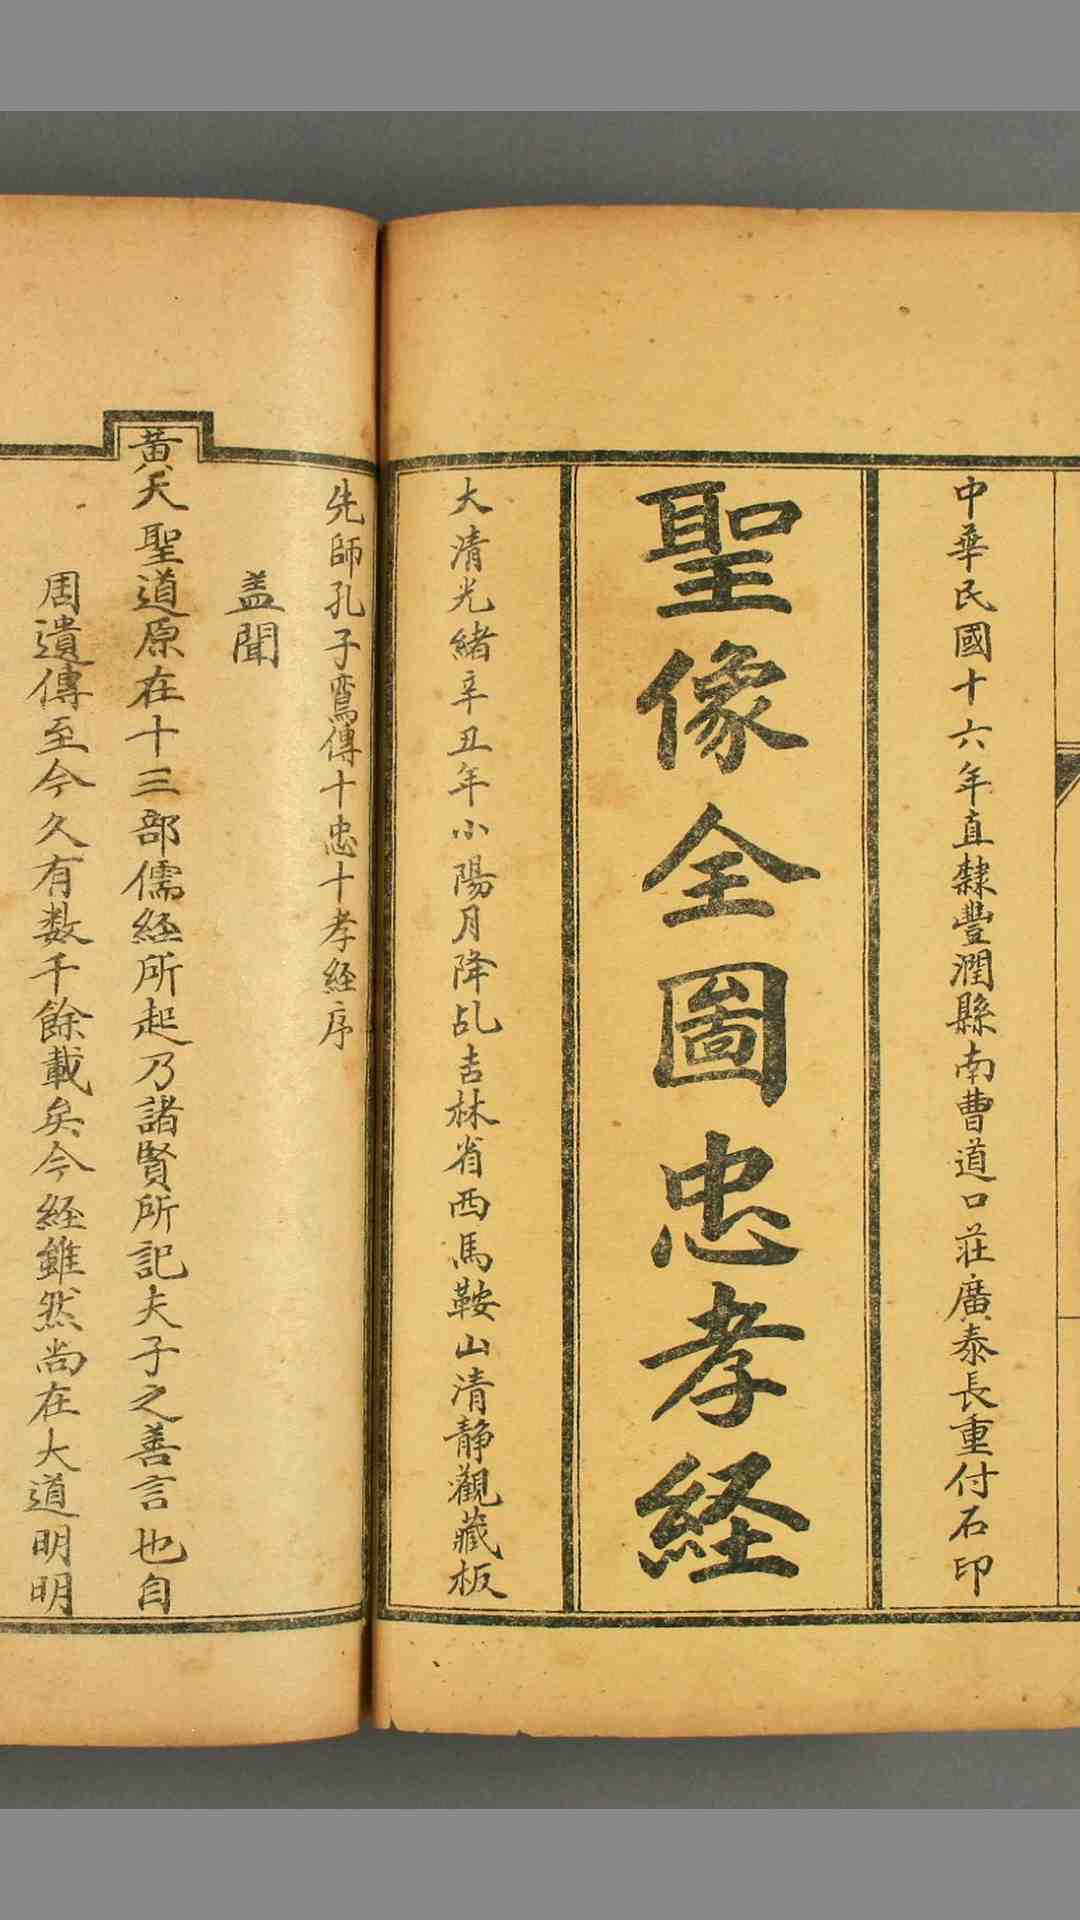 中華民國十六年直隸豐潤縣南曹道口莊廣泰長重付石印
聖像全圖忠孝経
大清光緒辛丑年小陽月降乩吉林省西馬鞍山清靜觀藏板
先師孔子鸞傳十忠十孝経序
盖聞
黄天聖道原在十三部儒経所起乃諸賢所記夫子之善言也自
周遺傳至今久有数千餘載矣今経雖然尚在大道明明